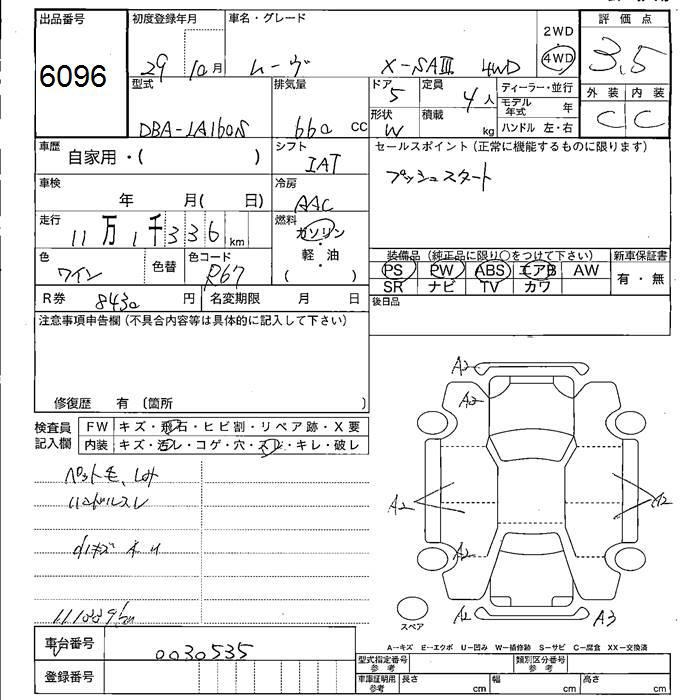 出品番号 初度登録年月 車名・グレード 評価点
6096 29 10月 ムーヴ X-SAⅢ 4WD 2WD 4WD 3.5
型式 排気量 ドア 5 定員 4人 ディーラー・並行 外装 内装
DBA-LA160S 660 CC 形状 W 積載 kg モデル年式 年 C C
ハンドル 左・右
車歴 自家用・( ) シフト IAT セールスポイント(正常に機能するものに限ります)
車検 年 月( 日) 冷房 AAC プッシュスタート
走行 11万1千336km 燃料 ガソリン・軽・油 ( )
色 ワイン 色替 色コード R67
装備品(純正品に限り○をつけて下さい) 新車保証書
PS PW ABS エアB AW 有・無
SR ナビ TV カワ
R券 8430円 名変期限 月 日 後日品
注意事項申告欄(不具合内容等は具体的に記入して下さい)
修復歴 有(箇所 )
検査員記入欄 FW キズ・飛石・ヒビ割・リペア跡・X要
内装 キズ・汚レ・コゲ・穴・スレ・キレ・破レ
ペット毛、シミ
ハンドルスレ
小キズ
A2
A2
A2 A2
A2
A3
スペア
A−キズ E−エクボ U−凹み W−補修跡 S−サビ C−腐食 XX−交換済
車台番号 0030535
登録番号
型式指定番号 参考 類別区分番号 参考
車庫証明用 参考 長さ cm 幅 cm 高さ cm